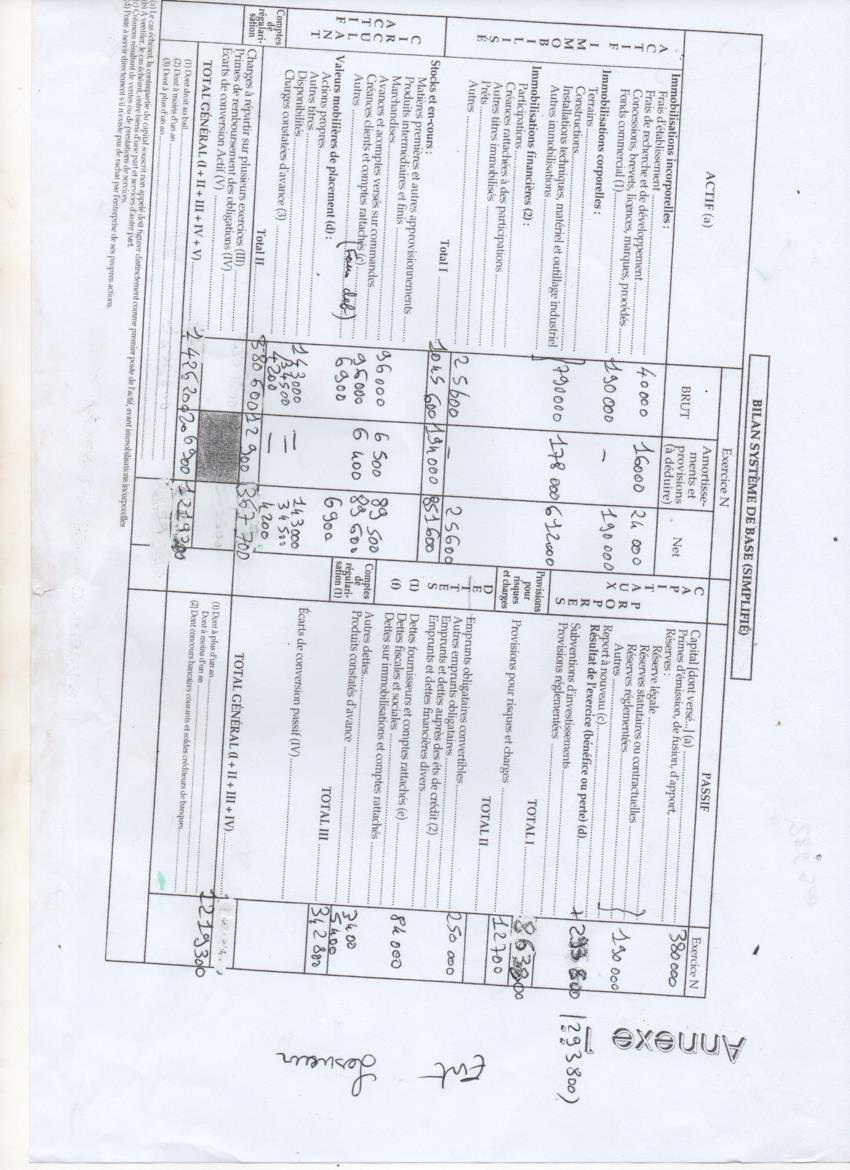 BILAN SYSTÈME DE BASE (SIMPLIFIÉ)
Annexe 1
Ent Lesueur
ACTIF (a)
Exercice N
BRUT
Amortisse-
ments et
provisions
(à déduire)
Net
ACTIF IMMOBILISÉ
Immobilisations incorporelles :
Frais d'établissement
Frais de recherche et de développement 40000 16000 24 000
Concessions, brevets, licences, marques, procédés
Fonds commercial (1) 190 000 – 190 000
Immobilisations corporelles :
Terrains
Constructions
Installations techniques, matériel et outillage industriel 790000 178 000 612000
Autres immobilisations
Immobilisations financières (2) :
Participations
Créances rattachées à des participations
Autres titres immobilisés
Prêts
Autres 25600 – 25600
Total I 1045 600 194 000 851 600
ACTIF CIRCULANT
Stocks et en-cours :
Matières premières et autres approvisionnements
Produits intermédiaires et finis
Marchandises 96000 6 500 89 500
Avances et acomptes versés sur commandes
Créances clients et comptes rattachés (c) 96000 6 400 89 600
Autres (Fourn deb) 6900 6900
Valeurs mobilières de placement (d) :
Actions propres
Autres titres 143000 – 143000
Disponibilités 34500 – 34 500
Comptes
de
régulari-
sation
Charges constatées d'avance (3) 4200 – 4200
Total II 380 600 12 900 367 700
Charges à répartir sur plusieurs exercices (III)
Primes de remboursement des obligations (IV)
Écarts de conversion Actif (V)
TOTAL GÉNÉRAL (I + II + III + IV + V) 1 426 200 206 900 1219300
(1) Dont droit au bail
(2) Dont à moins d'un an
(3) Dont à plus d'un an
PASSIF
Exercice N
CAPITAUX PROPRES
Capital [dont versé...] (a) 380 000
Primes d'émission, de fusion, d'apport,
Réserves :
Réserve légale
Réserves statutaires ou contractuelles
Réserves réglementées 190 000
Autres
Report à nouveau (c)
Résultat de l'exercice (bénéfice ou perte) (d) + 293 800 (293 800)
Subventions d'investissements
Provisions réglementées
TOTAL I 863800
Provisions
pour
risques
et charges
Provisions pour risques et charges 12700
TOTAL II
DETTES
(1)
(f)
Emprunts obligataires convertibles
Autres emprunts obligataires 250 000
Emprunts et dettes auprès des éts de crédit (2)
Emprunts et dettes financières divers
Dettes fournisseurs et comptes rattachés (e) 84 000
Dettes fiscales et sociales
Dettes sur immobilisations et comptes rattachés
Autres dettes 3400
Comptes
de
régulari-
sation (1)
Produits constatés d'avance 5400
TOTAL III 342 800
Écarts de conversion passif (IV)
TOTAL GÉNÉRAL (I + II + III + IV) 1219300
(1) Dont à plus d'un an
Dont à moins d'un an
(2) Dont concours bancaires courants et soldes créditeurs de banques
(a) Le cas échéant, la contrepartie du capital souscrit non appelé doit figurer distinctement comme premier poste de l'actif, avant immobilisations incorporelles
(b) A ventiler, le cas échéant, entre biens d'une part et services d'autre part.
(c) Créances résultant de ventes ou de prestations de services.
(d) Poste à servir directement s'il n'existe pas de rachat par l'entreprise de ses propres actions.